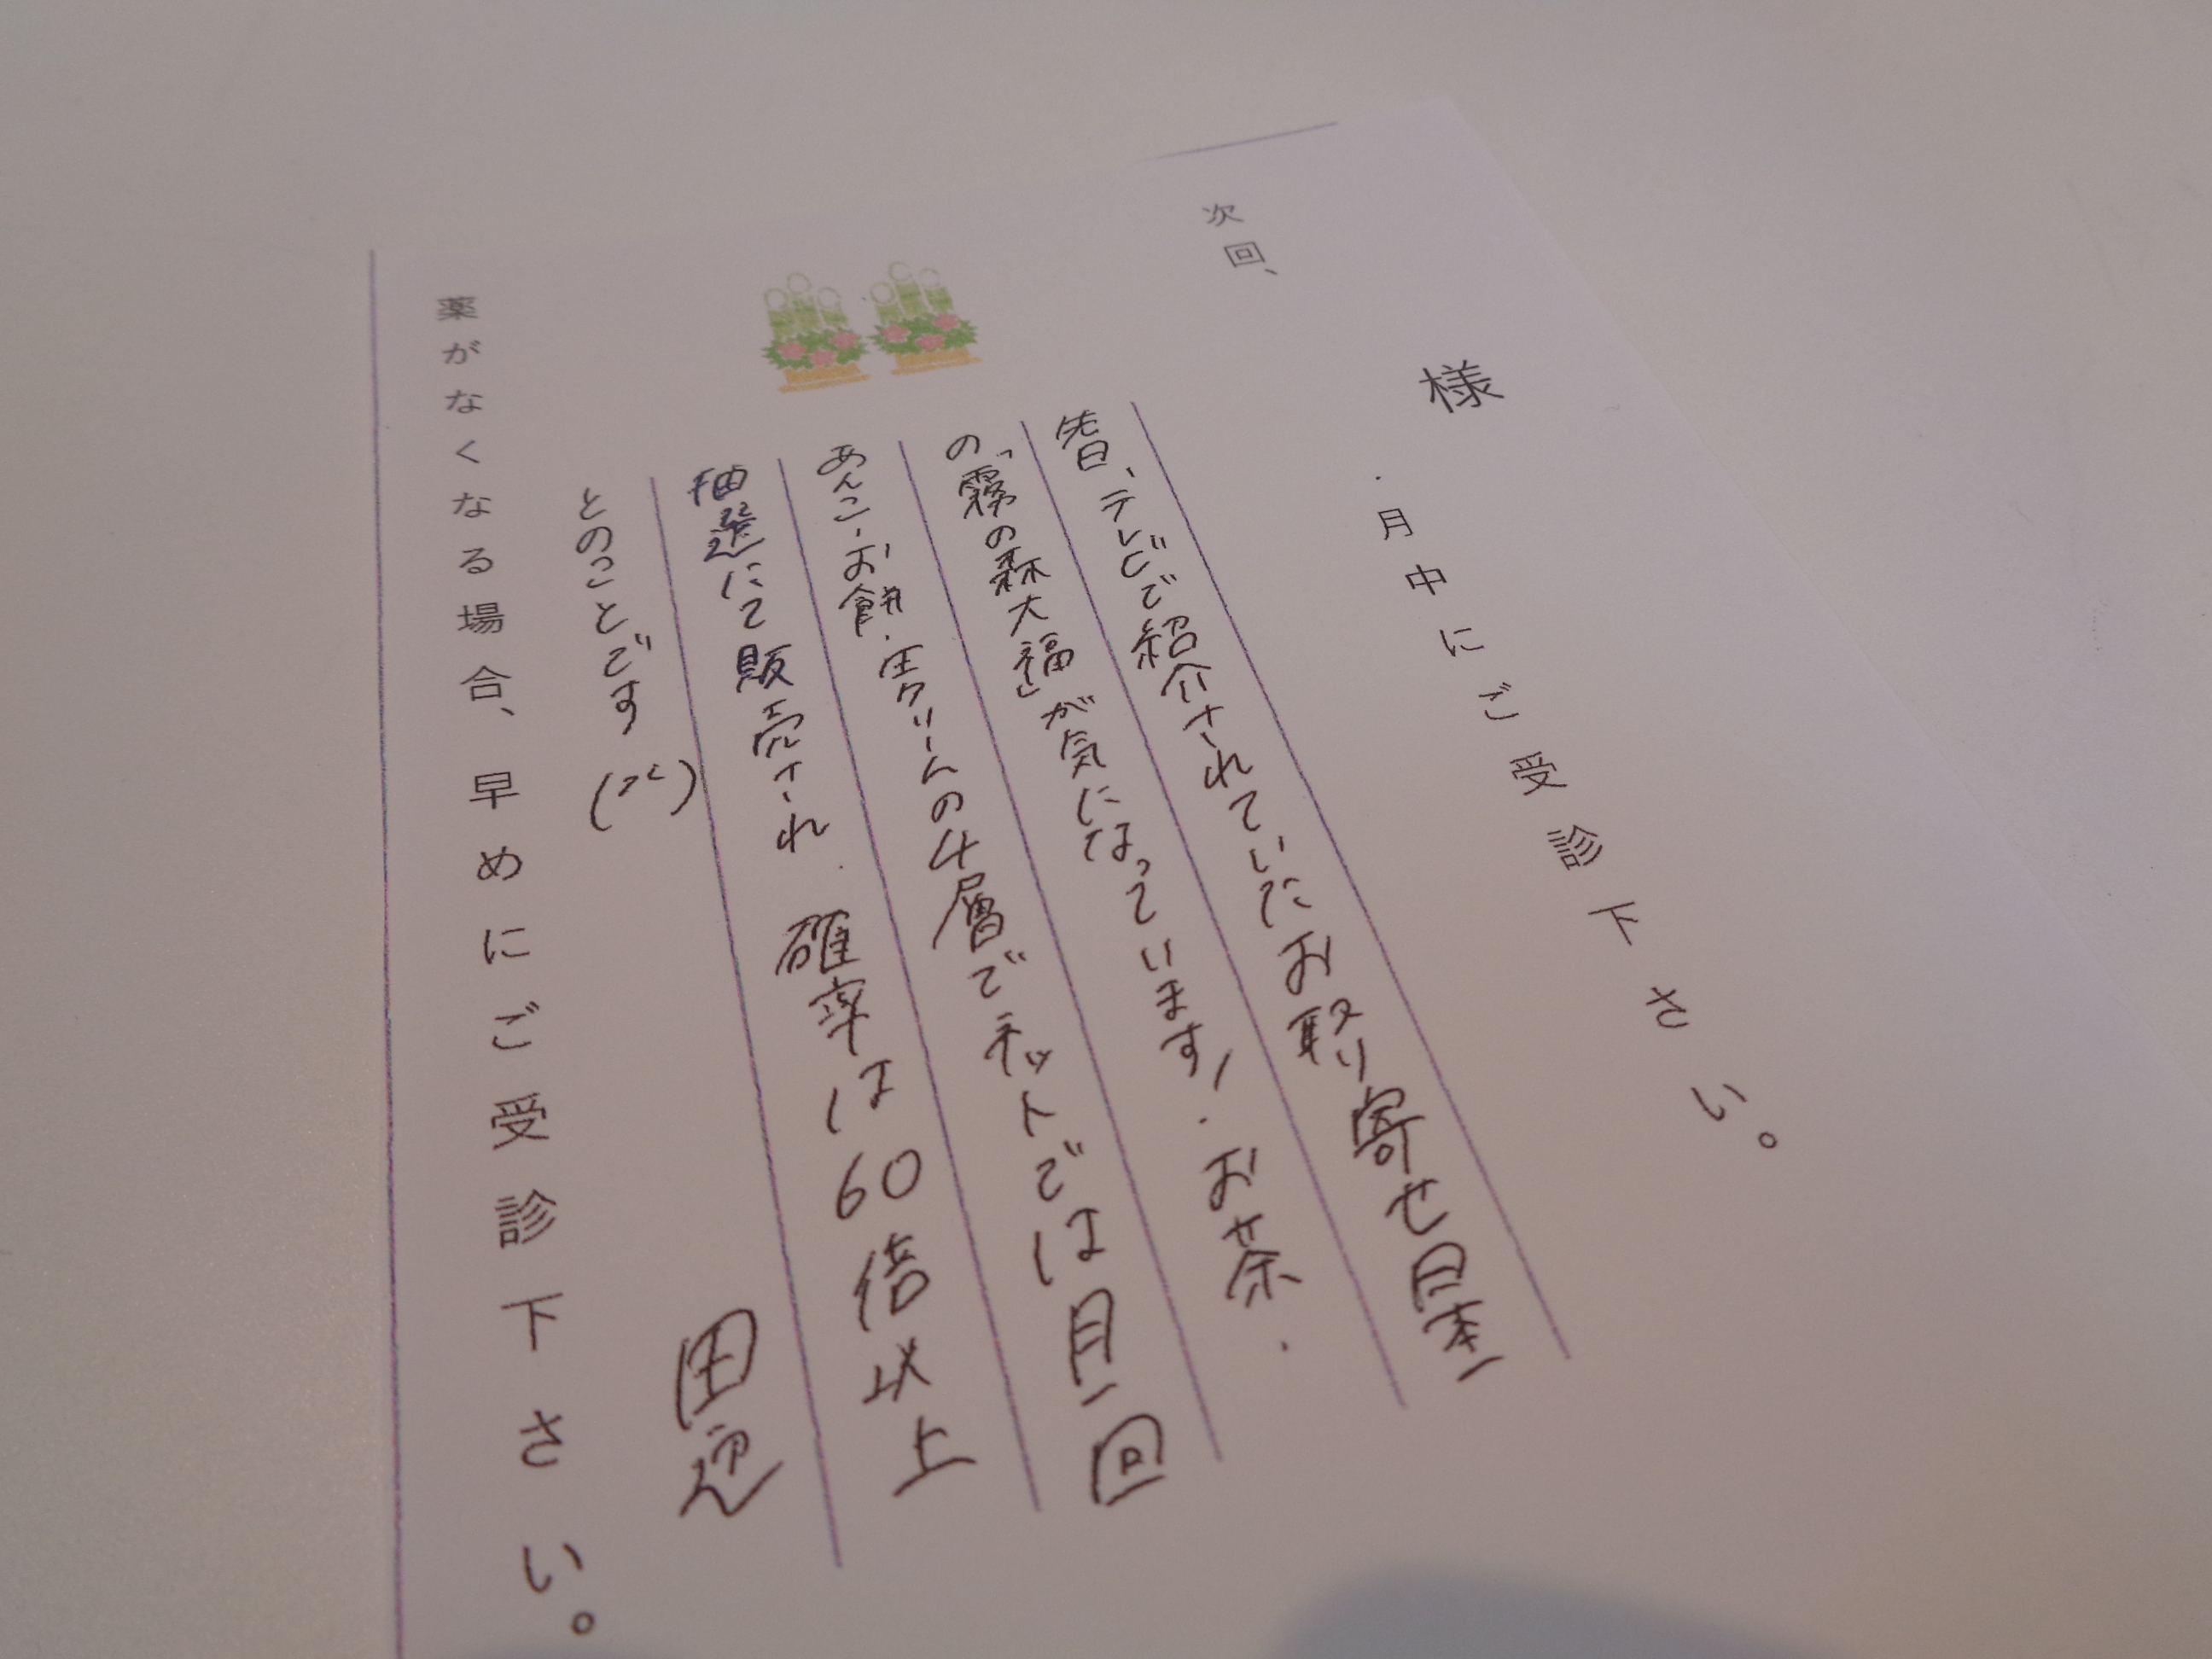 様
次回、 月中にご受診下さい。
先日、テレビで紹介されていたお取り寄せ日本一
の「霧の森大福」が気になっています！お茶・
あんこ・お餅・生クリームの4層でネットでは月一回
抽選にて販売され 確率は60倍以上
とのことです
田辺
薬がなくなる場合、早めにご受診下さい。